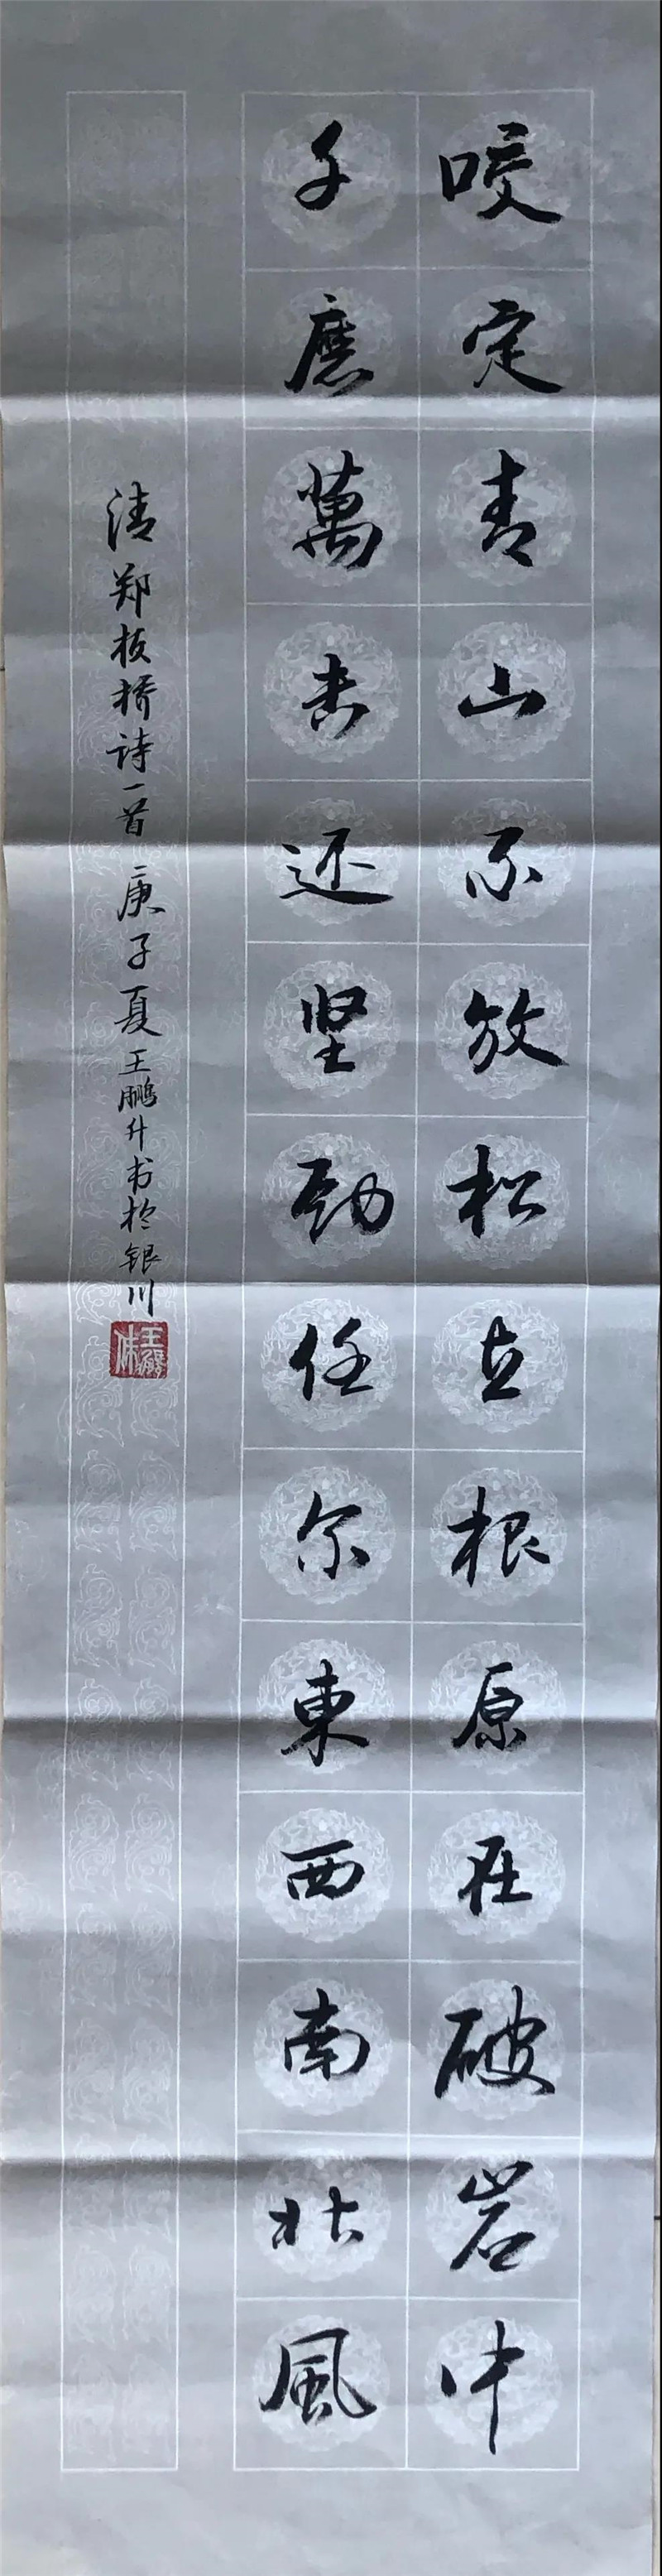 咬定青山不放松立根原在破岩中
千磨萬击还坚劲任尔東西南北風
清郑板桥诗一首庚子夏王鹏升书於银川